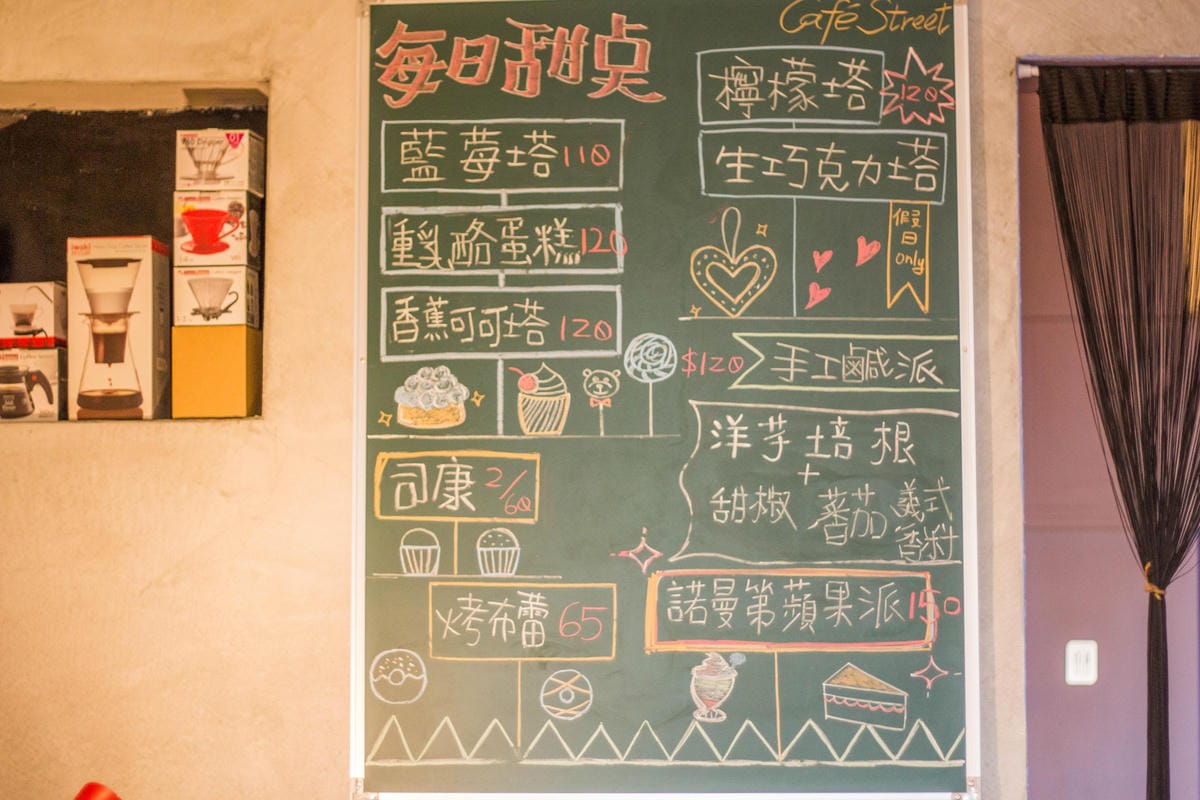 Café Street
每日甜点
藍莓塔 110
重乳酪蛋糕 120
香蕉可可塔 120
司康 2/60
烤布蕾 65
檸檬塔 120
生巧克力塔
假
日
only
$120 手工鹹派
洋芋培根
+
甜椒 蕃茄 義式
香料
諾曼第蘋果派 150
iwaki
01